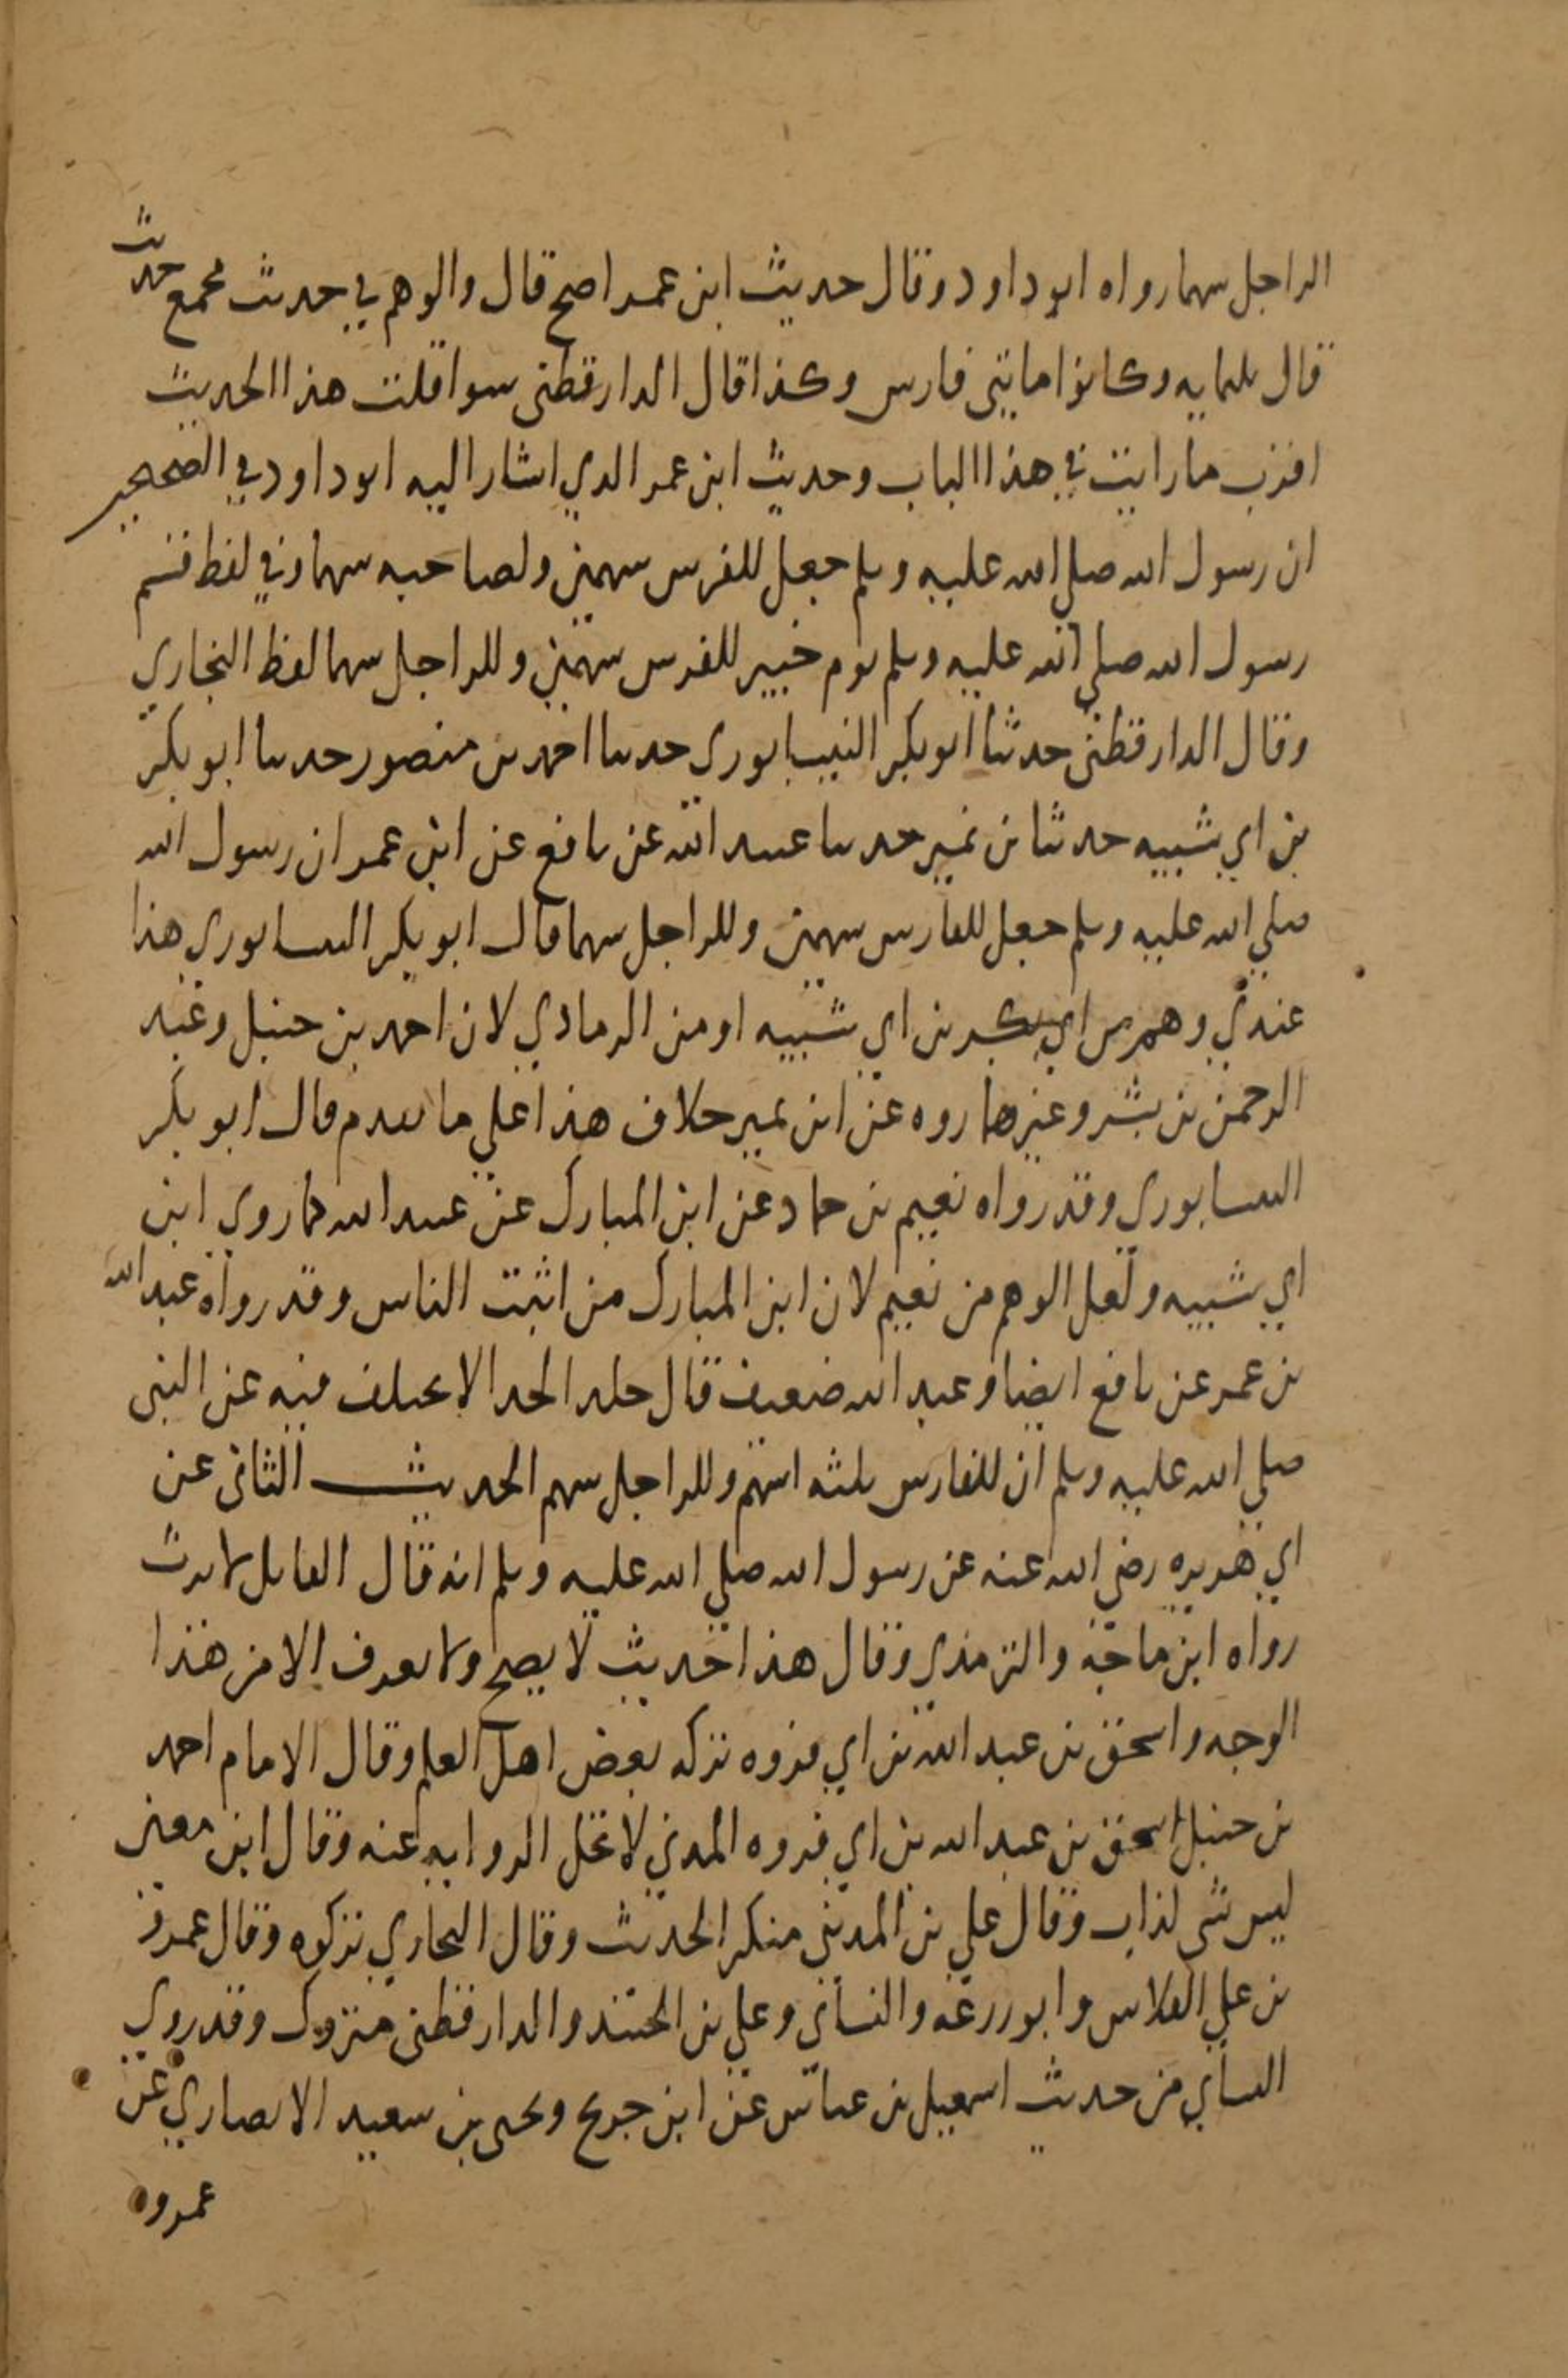 الراجل سهما رواه ابو داود وقال حديث ابن عمر اصح قال والوهم في حديث مجمع حيث
قال ثلثمايه وكانوا مايتي فارس وكذا قال الدارقطني سوا قلت هذا الحديث
اقرب ما رايت في هذا الباب وحديث ابن عمر الذي اشار اليه ابو داود في الصحيحين
ان رسول الله صلي الله عليه وسلم جعل للفرس سهمين ولصاحبه سهما وفي لفظ قسم
رسول الله صلي الله عليه وسلم يوم خيبر للفرس سهمين وللراجل سهما لفظ البخاري
وقال الدارقطني حدثنا ابو بكر النيسابوري حدثنا احمد بن منصور حدثنا ابو بكر
بن ابي شيبه حدثنا بن نمير حدثنا عبيد الله عن نافع عن ابن عمر ان رسول الله
صلي الله عليه وسلم جعل للفارس سهمين وللراجل سهما قال ابو بكر النيسابوري هذا
عندي وهم من ابي بكر بن ابي شيبه او من الرمادي لان احمد بن حنبل وعبد
الرحمن بن بشر وغيرهما رووه عن ابن نمير خلاف هذا علي ما تقدم قال ابو بكر
النيسابوري وقد رواه نعيم بن حماد عن ابن المبارك عن عبيد الله كما روي ابن
ابي شيبه ولعل الوهم من نعيم لان ابن المبارك من اثبت الناس وقد رواه عبد الله
بن عمر عن نافع ايضا وعبد الله ضعيف قال خالد الحذا لا يختلف فيه عن النبي
صلي الله عليه وسلم ان للفارس ثلثه اسهم وللراجل سهم الحديث الثاني عن
ابي هريره رضي الله عنه عن رسول الله صلي الله عليه وسلم انه قال القاتل لا يرث
رواه ابن ماجه والترمذي وقال هذا حديث لا يصح ولا يعرف الا من هذا
الوجه واسحق بن عبد الله بن ابي فروه تركه بعض اهل العلم وقال الامام احمد
بن حنبل اسحق بن عبد الله بن ابي فروه المدني لا تحل الروايه عنه وقال ابن معين
ليس بشي كذاب وقال علي بن المديني منكر الحديث وقال البخاري تركوه وقال عمرو
بن علي الفلاس وابو زرعه والنسائي وعلي بن الجنيد والدارقطني متروك وقد روي
النسائي من حديث اسمعيل بن عياش عن ابن جريج ويحيى بن سعيد الانصاري عن
عمرو